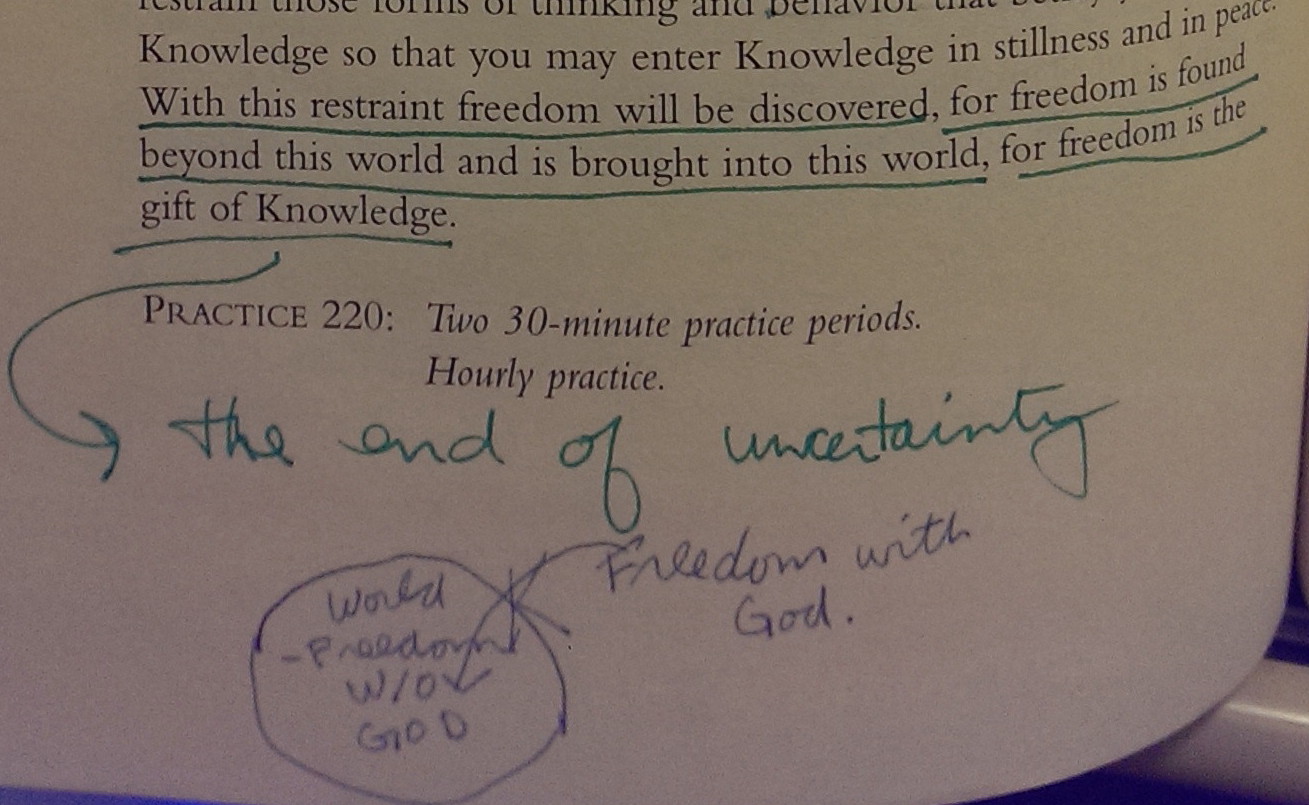 restrain those forms of thinking and behavior that
Knowledge so that you may enter Knowledge in stillness and in peace.
With this restraint freedom will be discovered, for freedom is found
beyond this world and is brought into this world, for freedom is the
gift of Knowledge.
PRACTICE 220: Two 30-minute practice periods.
Hourly practice.
the end of uncertainty
Freedom with
God.
World
- Freedom
W/O
GOD